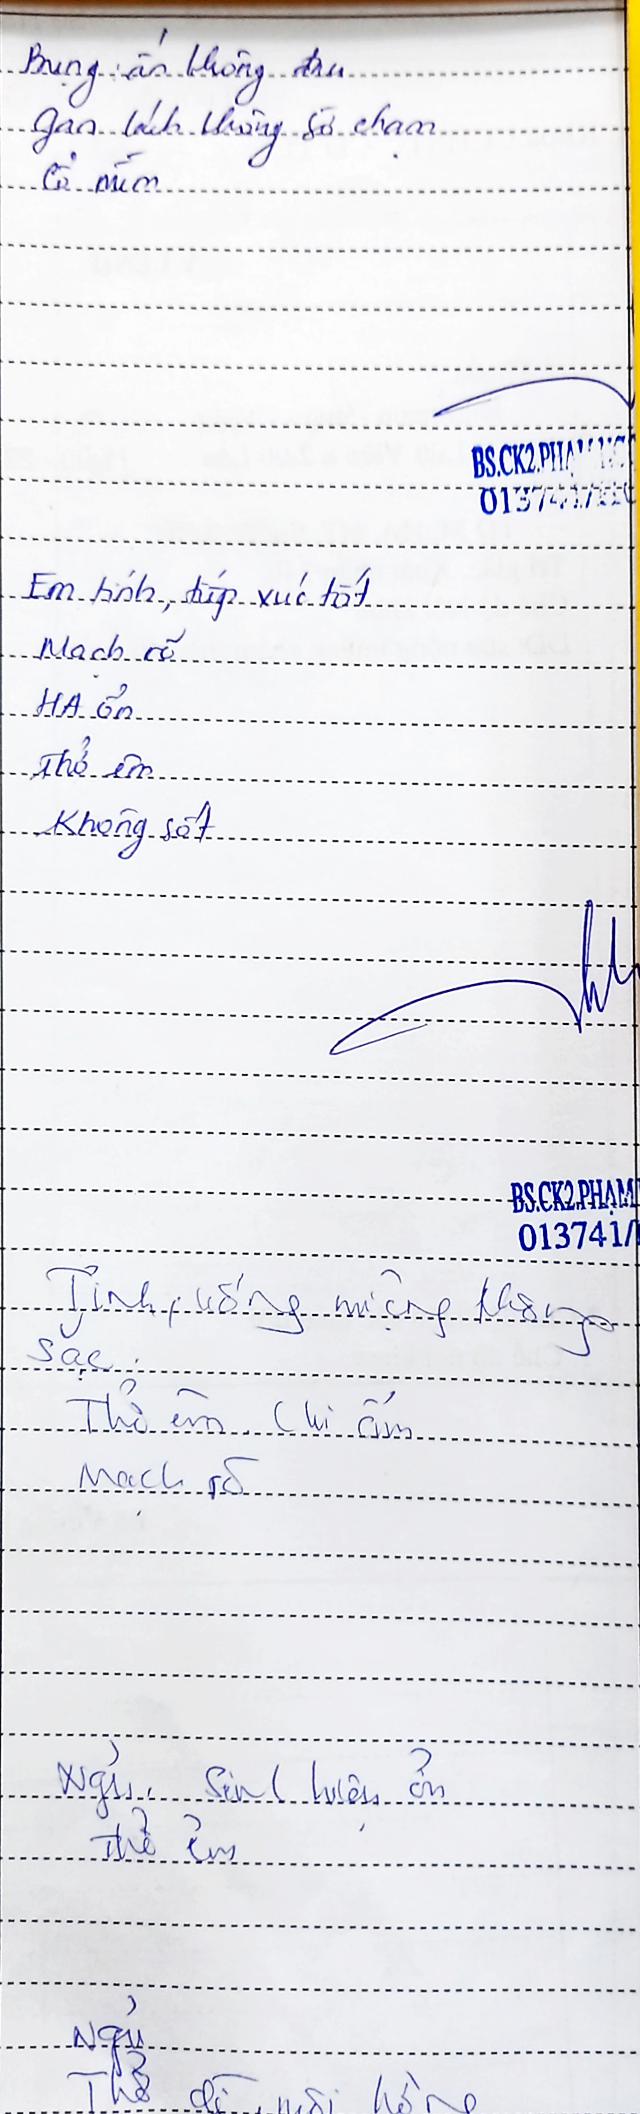 Bụng: ấn không đau
gan lách không sờ chạm
Cổ mềm
BS.CK2.PHẠM NGỌ
013741/
Em tỉnh, tiếp xúc tốt
Mạch rõ
HA ổn
Thở êm
Không sốt
BS.CK2.PHẠM
013741/
Tỉnh, uống miệng không
sặc.
Thở êm. Chi ấm
Mạch rõ
Ngủ. Sinh hiệu ổn
Thở êm
Ngủ
Thở dễ, môi hồng